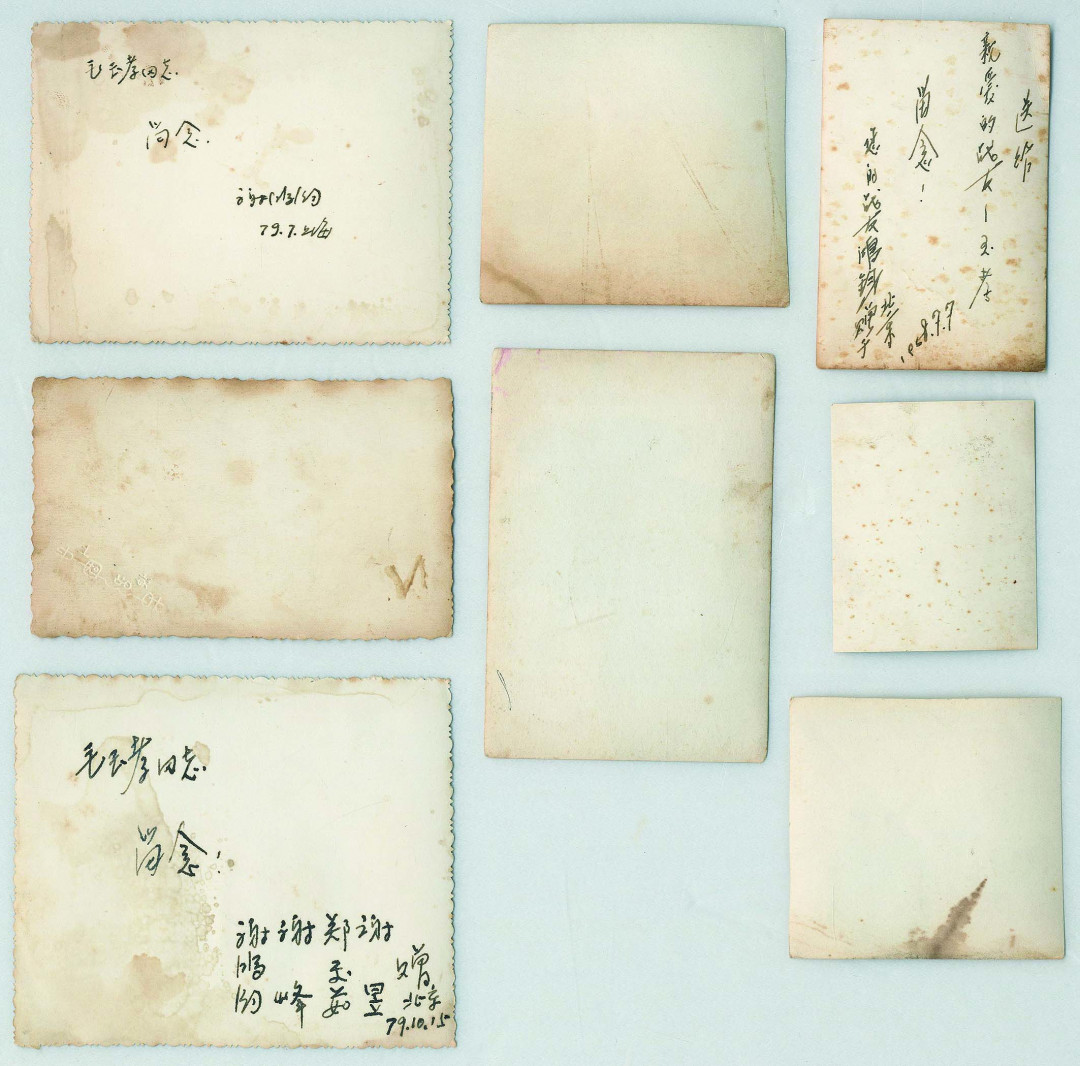 毛玉孝同志
留念.
谢鸿钧
79.7.上海
送给
亲爱的战友—玉孝
留念！
您的战友鸿钧赠于
北京
1968.7.7
毛玉孝同志
留念！
谢鸿钧 谢峰 郑玉茹 谢昱
赠
北京
79.10.15